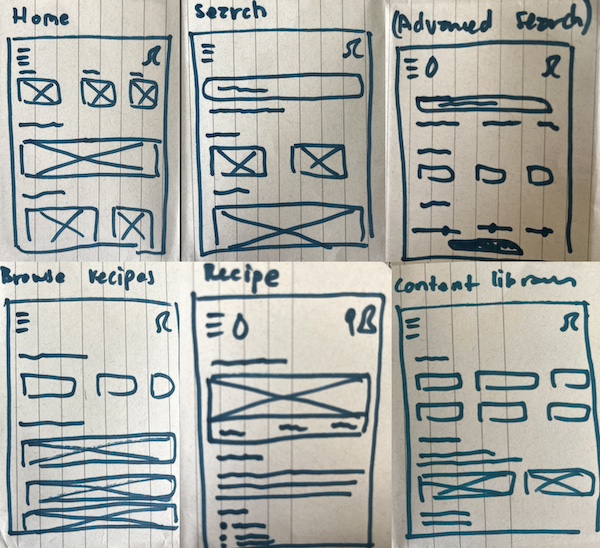 Home
Search
(Advanced Search)
Browse recipes
Recipe
Content library